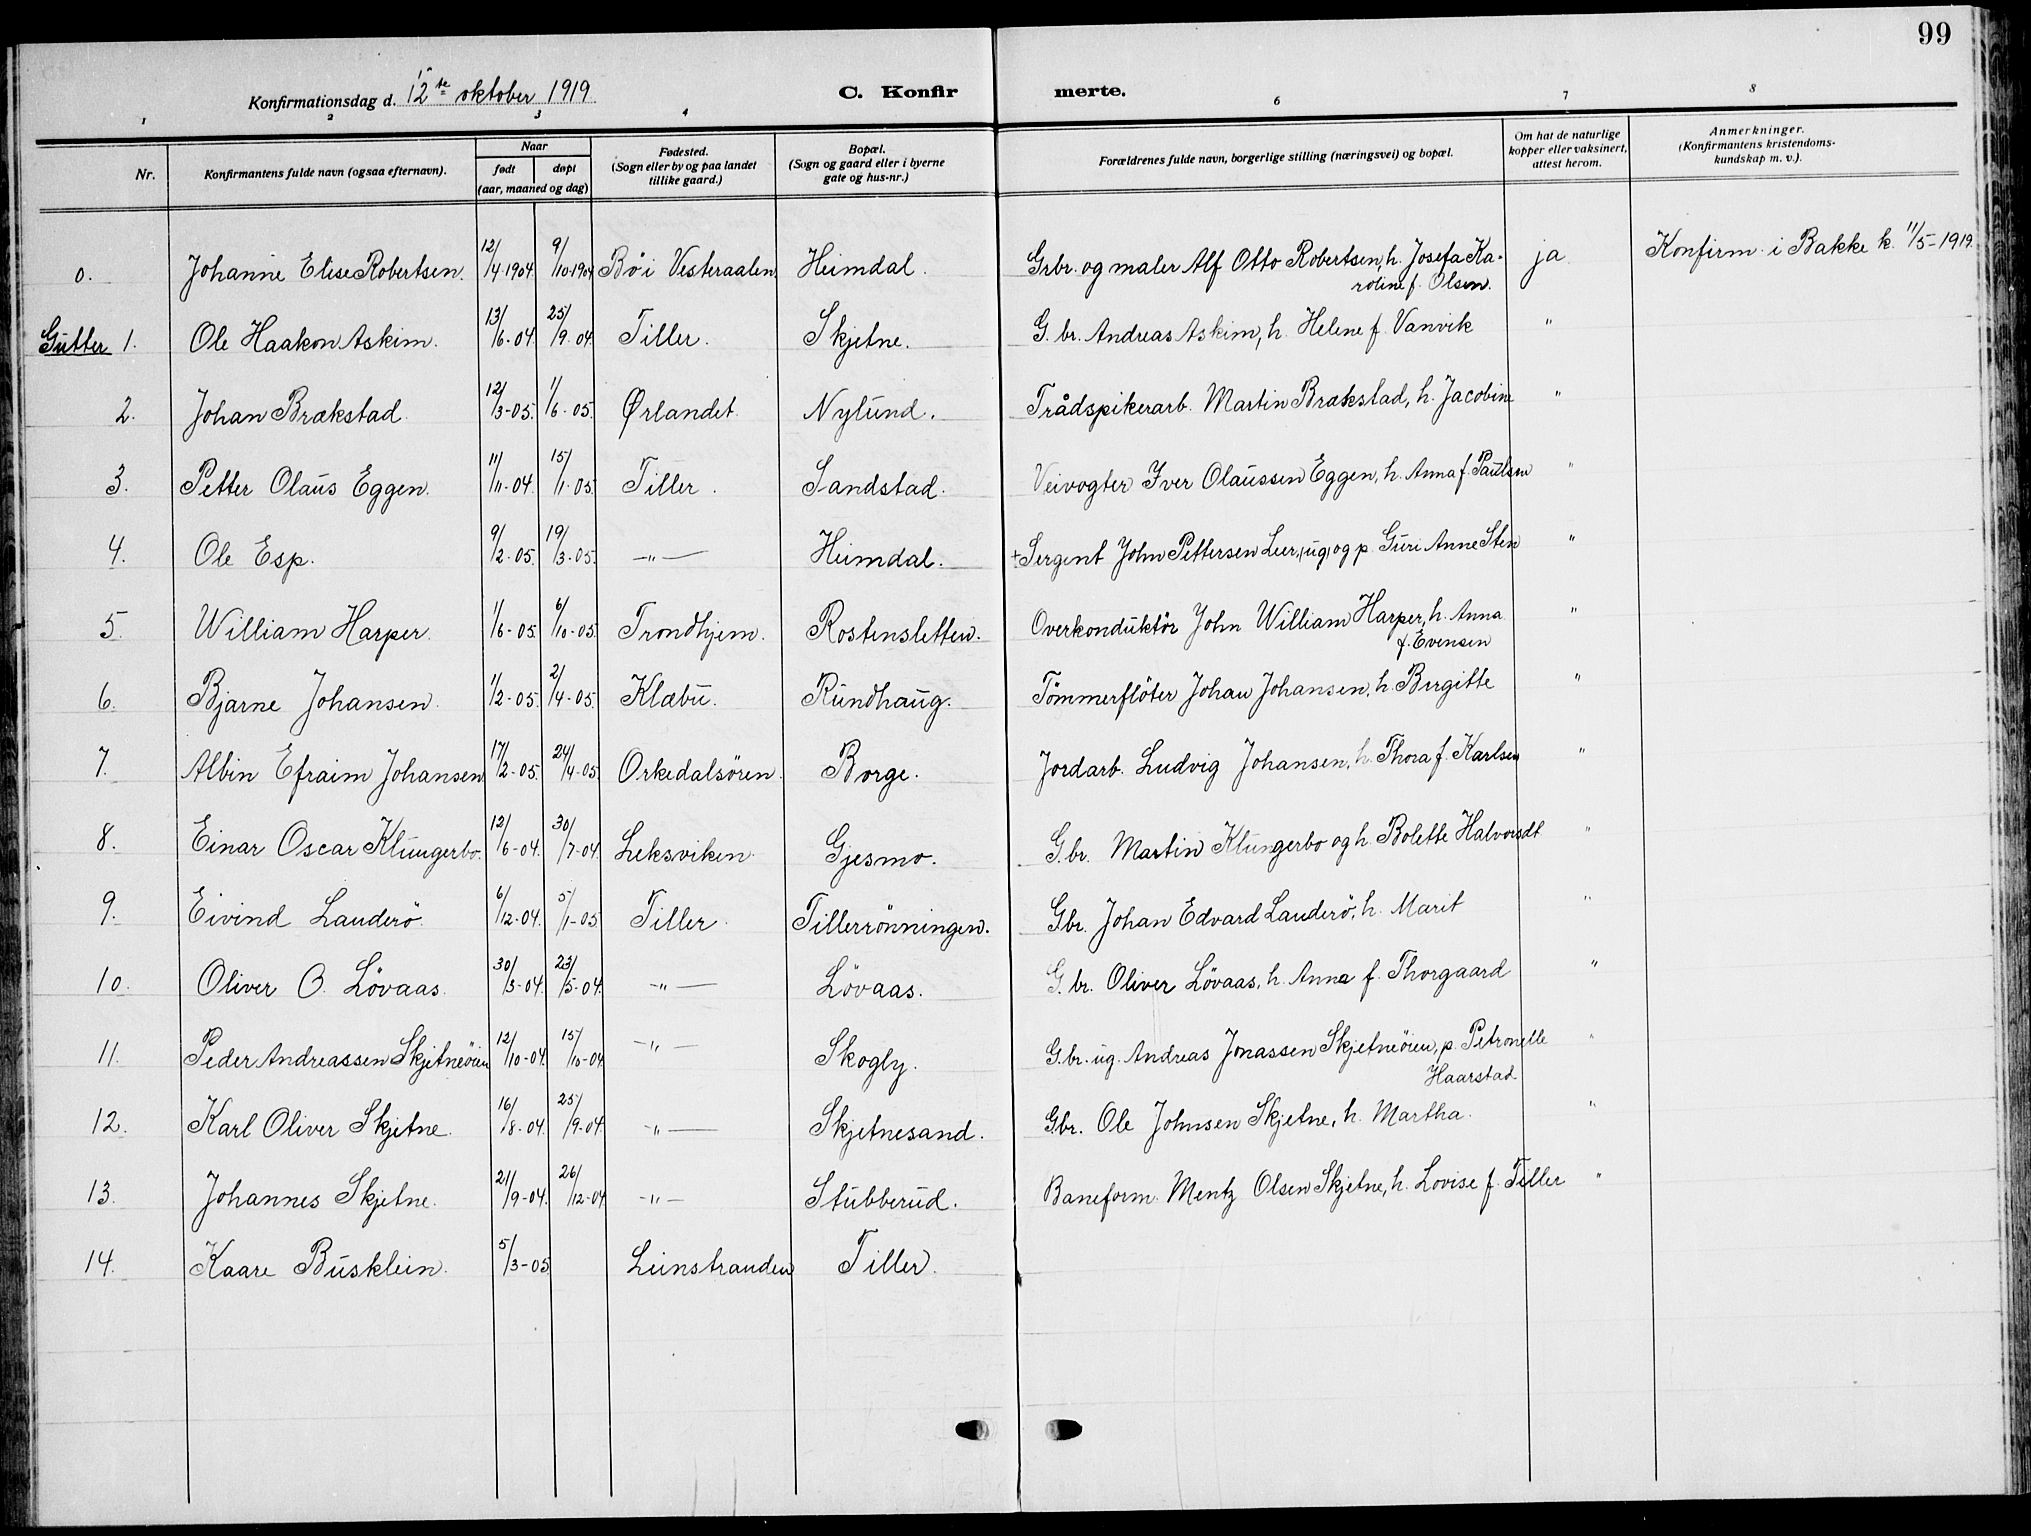 99
Konfirmationsdag d. 12te oktober 1919
C. Konfirmerte.
1 2 3 4 6 7 8
Nr. Konfirmantens fulde navn (ogsaa efternavn). Naar født døpt (aar, maaned og dag) Fødested. (Sogn eller by og paa landet tillike gaard.) Bopæl. (Sogn og gaard eller i byerne gate og hus-nr.) Forældrenes fulde navn, borgerlige stilling (næringsvei) og bopæl. Om hat de naturlige kopper eller vaksinert, attest herom. Anmerkninger. (Konfirmantens kristendoms-kundskap m. v.).
0. Johanne Elise Robertsen. 12/4-1904 9/10-1904 Bø i Vesteraalen Heimdal. Grbr. og maler Alf Otto Robertsen, h. Josefa Ka- ja Konfirm. i Bakke k. 11/5-1919
roline f. Olsen.
Gutter 1. Ole Haakon Askim. 13/6-04. 25/9 04. Tiller. Skjetne. G. br. Andreas Askim, h. Helene f. Vanvik "
2. Johan Brækstad. 12/3-05. 1/6-05. Ørlandet. Nylund. Trådspikerarb. Martin Brækstad, h. Jacobine "
3. Petter Olaus Eggen. 11/11-04. 15/1-05. Tiller. Sandstad. Veivogter Iver Olaussen Eggen, h. Anna f. Paulsen "
4. Ole Esp. 9/2-05. 19/3-05. -"- Heimdal. + Sergent John Pettersen Leer, ug, og p. Guri Anne Sten "
5. William Harper. 1/6-05 6/10-05. Trondhjem. Rostensletten. Overkonduktör John William Harper, h. Anna "
f. Evensen
6. Bjarne Johansen. 1/2-05. 2/4-05. Klæbu. Rundhaug. Tömmerflöter Johan Johansen, h. Birgitte "
7. Albin Efraim Johansen 17/2-05. 24/4-05 Orkedalsören. Borge. Jordarb. Ludvig Johansen, h. Thora f. Karlsen "
8. Einar Oscar Klungerbo. 12/6-04. 30/7-04. Leksviken. Gjesmo. G. br. Martin Klungerbo og h. Bolette Halvorsdt "
9. Eivind Landerö. 6/12-04. 5/1-05 Tiller. Tillerrönningen. Gbr. Johan Edvard Landerö, h. Marit "
10. Oliver O. Lövaas. 30/3-04. 23/5-04. -"- Lövaas. G. br. Oliver Lövaas, h. Anna f. Thorgaard "
11. Peder Andreassen Skjetneöien 12/10-04. 15/10-04. -"- Skogly. G. br. ug. Andreas Jonassen Skjetneöien, p. Petronelle "
Haarstad.
12. Karl Oliver Skjetne. 16/8-04. 25/9-04. -"- Skjetnesand. Gbr. Ole Johnsen Skjetne, h. Martha. "
13. Johannes Skjetne. 21/9-04. 26/12-04. -"- Stubberud. Baneform. Mentz Olsen Skjetne, h. Lovise f. Tiller "
14. Kaare Busklein. 5/3-05 Leinstranden Tiller.